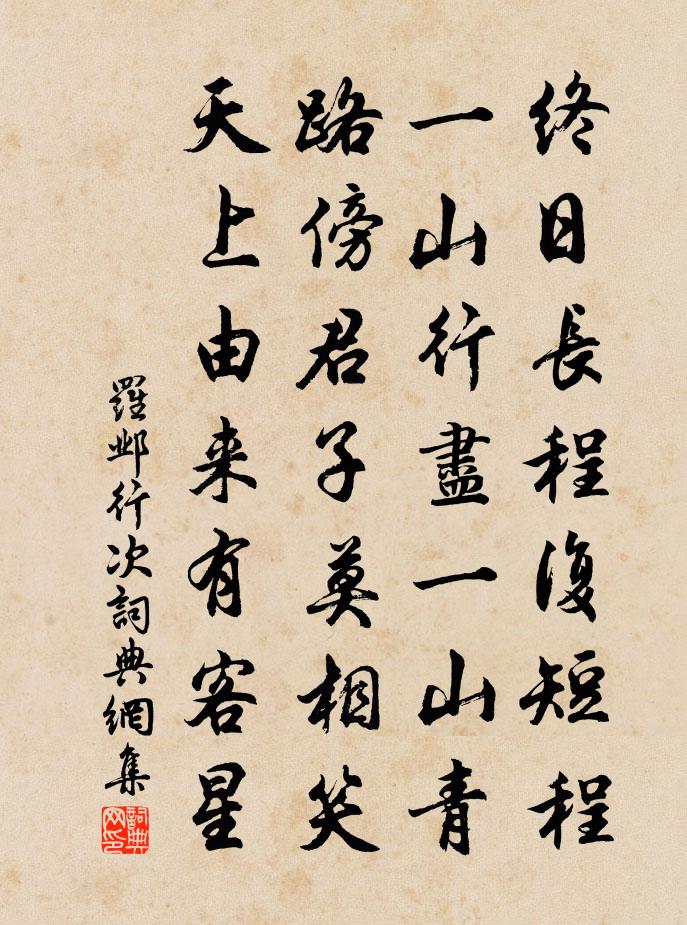 終日長程復短程
一山行盡一山青
路傍君子莫相笑
天上由来有客星
羅鄴行次詞典網集
詞典网印